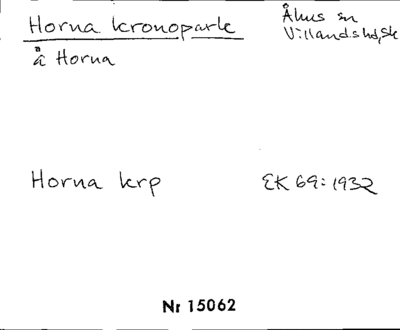 Horna kronopark
Åhus sn
Villands hd, Sk
å Horna
Horna krp
EK 69:1932
Nr 15062